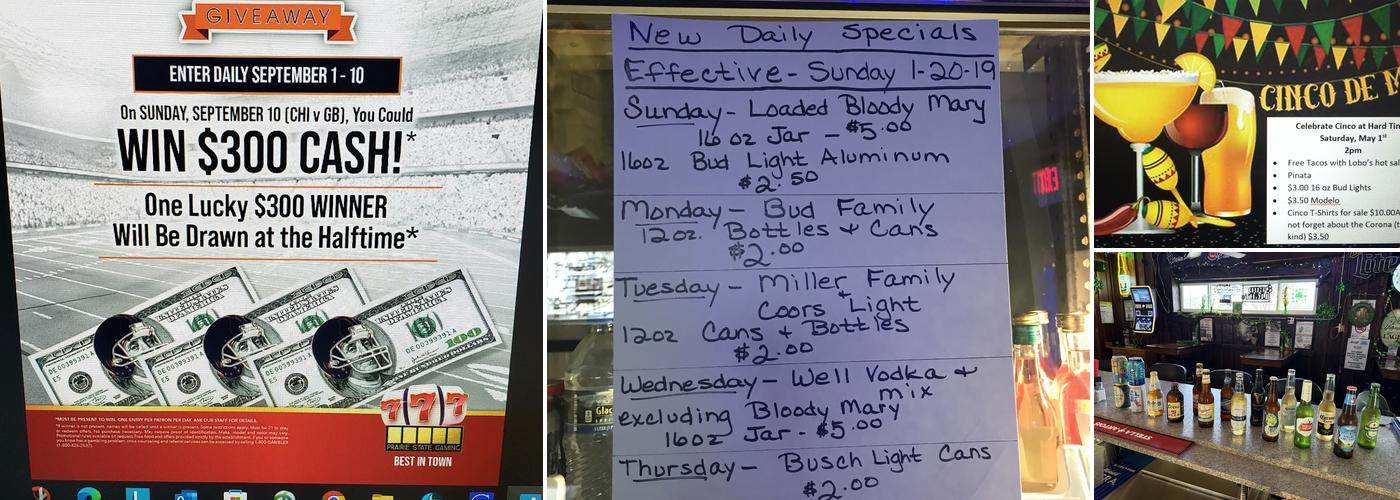 GIVEAWAY
ENTER DAILY SEPTEMBER 1 - 10
On SUNDAY, SEPTEMBER 10 (CHI v GB), You Could
WIN $300 CASH!*
One Lucky $300 WINNER
Will Be Drawn at the Halftime*
*MUST BE PRESENT TO WIN. ONE ENTRY PER PATRON PER DAY. ASK OUR STAFF FOR DETAILS.
777
PRAIRIE STATE GAMING
BEST IN TOWN
New Daily Specials
Effective - Sunday 1-20-19
Sunday - Loaded Bloody Mary
16 oz Jar - $5.00
16oz Bud Light Aluminum
$2.50
Monday - Bud Family
12oz. Bottles + Cans
$2.00
Tuesday - Miller Family
+ Coors Light
12oz Cans + Bottles
$2.00
Wednesday - Well Vodka +
mix
excluding Bloody Mary
16oz Jar - $5.00
Thursday - Busch Light Cans
$2.00
EXIT
CINCO DE M
Celebrate Cinco at Hard Tim
Saturday, May 1st
2pm
Free Tacos with Lobo's hot sal
Pinata
$3.00 16 oz Bud Lights
$3.50 Modelo
Cinco T-Shirts for sale $10.00/
not forget about the Corona (t
kind) $3.50
Lite
STELLA ARTOIS